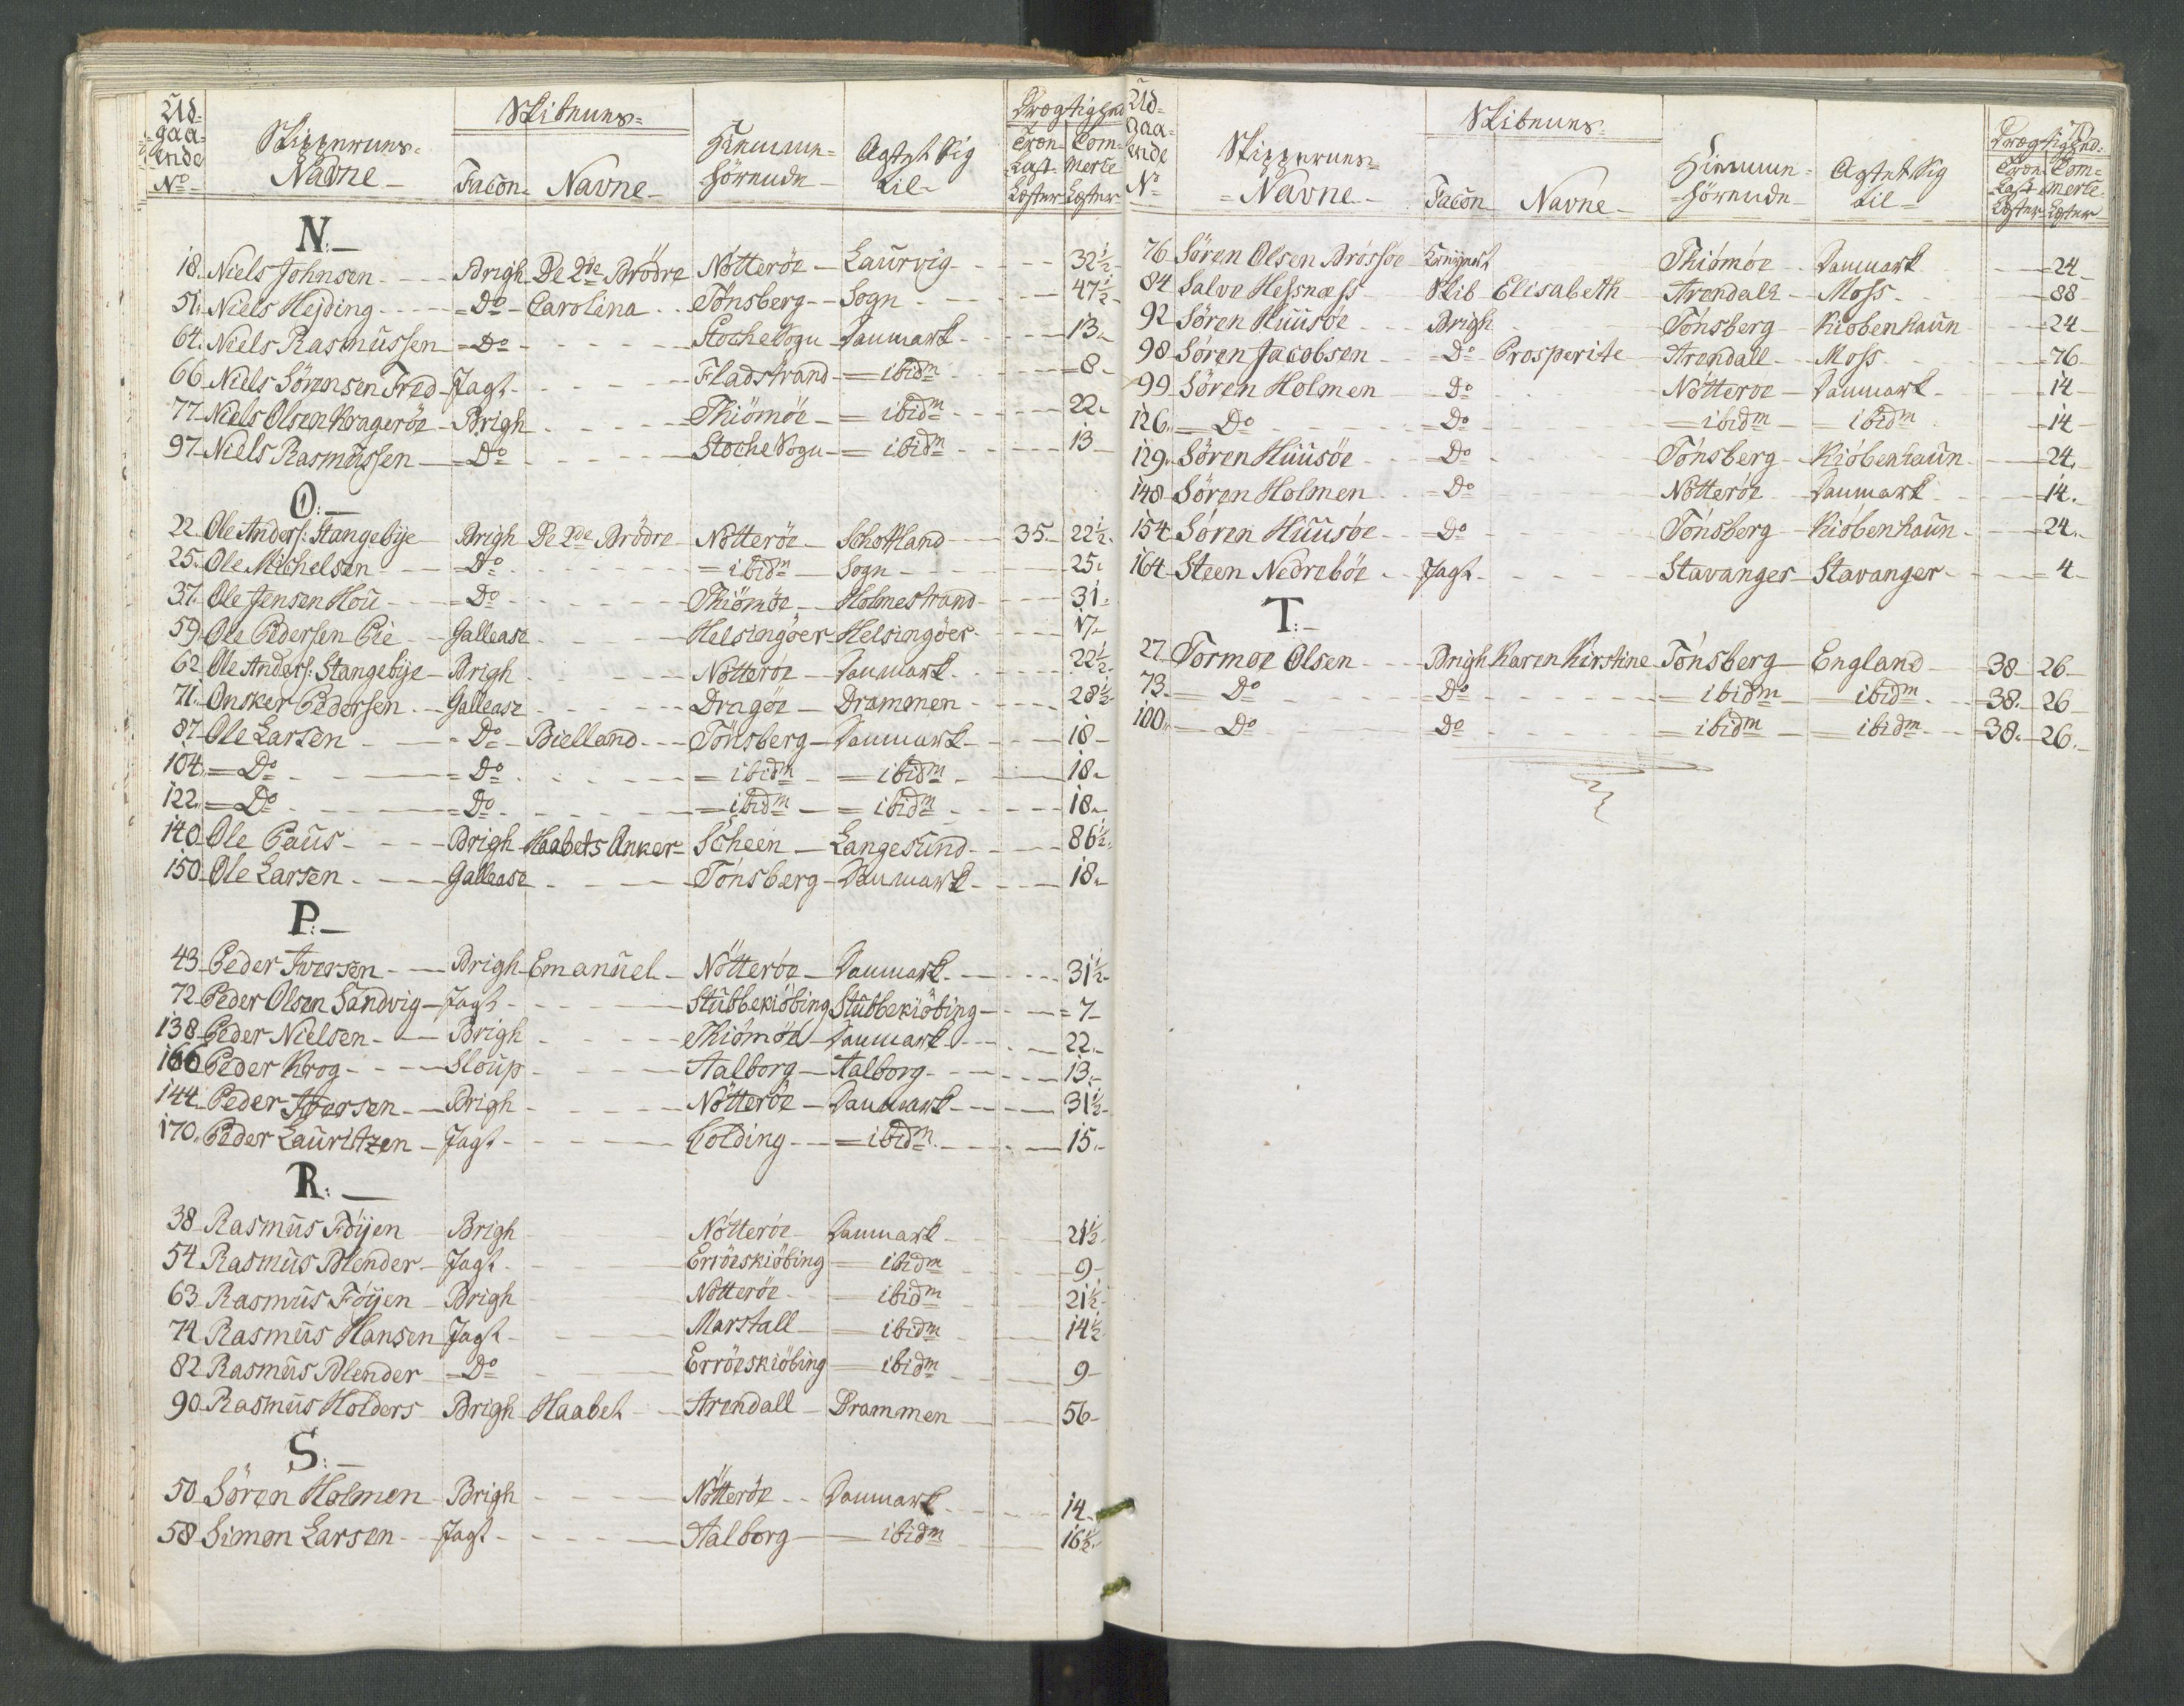 Udgaaende No | Skippernes Navne | Skibenes Facon | Navne | Hiemmehörende | Agtet sig til | Drægtighed Træ-Last Læster | Commerce Læster
N:
18. Niels Johnsen Brigh De 2de Brödre Nötteröe Laurvig 32½
51. Niels Hejding Do Carolina Tönsberg Sogn 47½
64. Niels Rasmussen Do Stoche Sogn Danmark 13
66 Niels Sörensen Fred Jagt Fladstrand ibidm 8
77 Niels Olsen Krageröe Brigh Thiömöe ibidm 22
97 Niels Rasmussen Do Stoche Sogn ibidm 13
O:
22 Ole Anders: Stangebye Brigh De 2de Brödre Nötteröe Schottland 35 22½
25. Ole Michelsen Do ibidm Sogn 25
37. Ole Jensen Hou Do Thiömöe Holmestrand 31
59. Ole Pedersen Pie Gallease Helsingöer Helsingöer 17
62 Ole Anders: Stangebye Brigh Nötteröe Danmark 22½
71. Onsker Pedersen Gallease Dragöe Drammen 28½
87 Ole Larsen Do Bielland Tönsberg Danmark 18
104. Do Do ibidm ibidm 18
122. Do Do ibidm ibidm 18
140 Ole Paus Brigh Haabets Anker Scheen Langesund 86½
150 Ole Larsen Gallease Tönsberg Danmark 18
P:
43 Peder Iversen Brigh Emanuel Nötteröe Danmark 31½
72 Peder Olsen Sandvig Jagt Stubbekiöbing Stubbekiöbing 7
138 Peder Nielsen Brigh Thiömöe Danmark 22
166 Peder Krog Sloup Aalborg Aalborg 13
144 Peder Iversen Brigh Nötteröe Danmark 31½
170. Peder Lauritzen Jagt Colding ibidm 15
R:
38 Rasmus Föyen Brigh Nötteröe Danmark 21½
54 Rasmus Blender Jagt Erröeskiöbing ibidm 9
63 Rasmus Föyen Brigh Nötteröe ibidm 21½
74 Rasmus Hansen Jagt Marstall ibidm 14½
82 Rasmus Blender Do Erröeskiöbing ibidm 9
90 Rasmus Holders Brigh Haabet Arendall Drammen 56
S:
50 Sören Holmen Brigh Nötteröe Danmark 14
58 Simon Larsen Jagt Aalborg ibidm 16½
Udgaaende No | Skippernes Navne | Skibenes Facon | Navne | Hiemmehörende | Agtet sig til | Drægtighed Træ-Last Læster | Commerce Læster
76 Sören Olsen Brössöe Thiömöe Danmark 24
84 Salve Hessnæss Skib Elisabeth Arendall Moss 88
92 Sören Huusöe Brigh Tönsberg Kiöbenhaun 24
98 Sören Jacobsen Do Prosperite Arendall Moss 76
99 Sören Holmen Do Nötteröe Danmark 14
126. Do Do ibidm ibidm 14
129. Sören Huusöe Do Tönsberg Kiöbenhaun 24.
148 Sören Holmen Do Nötteröe Danmark 14.
154 Sören Huusöe Do Tönsberg Kiöbenhaun 24.
164 Steen Nedreböe Jagt Stavanger Stavanger 4
T:
27 Tormoe Olsen Brigh Karen Kirstine Tönsberg England 38 26
73. Do Do ibidm ibidm 38. 26
100. Do Do ibidm ibidm 38. 26.